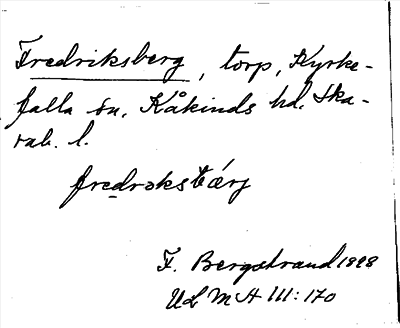 Fredriksberg, torp, Kyrke-
falla sn, Kåkinds hd. Ska-
rab. l.
fredrəksbärj
F. Bergstrand 1898
ULMA 111:170